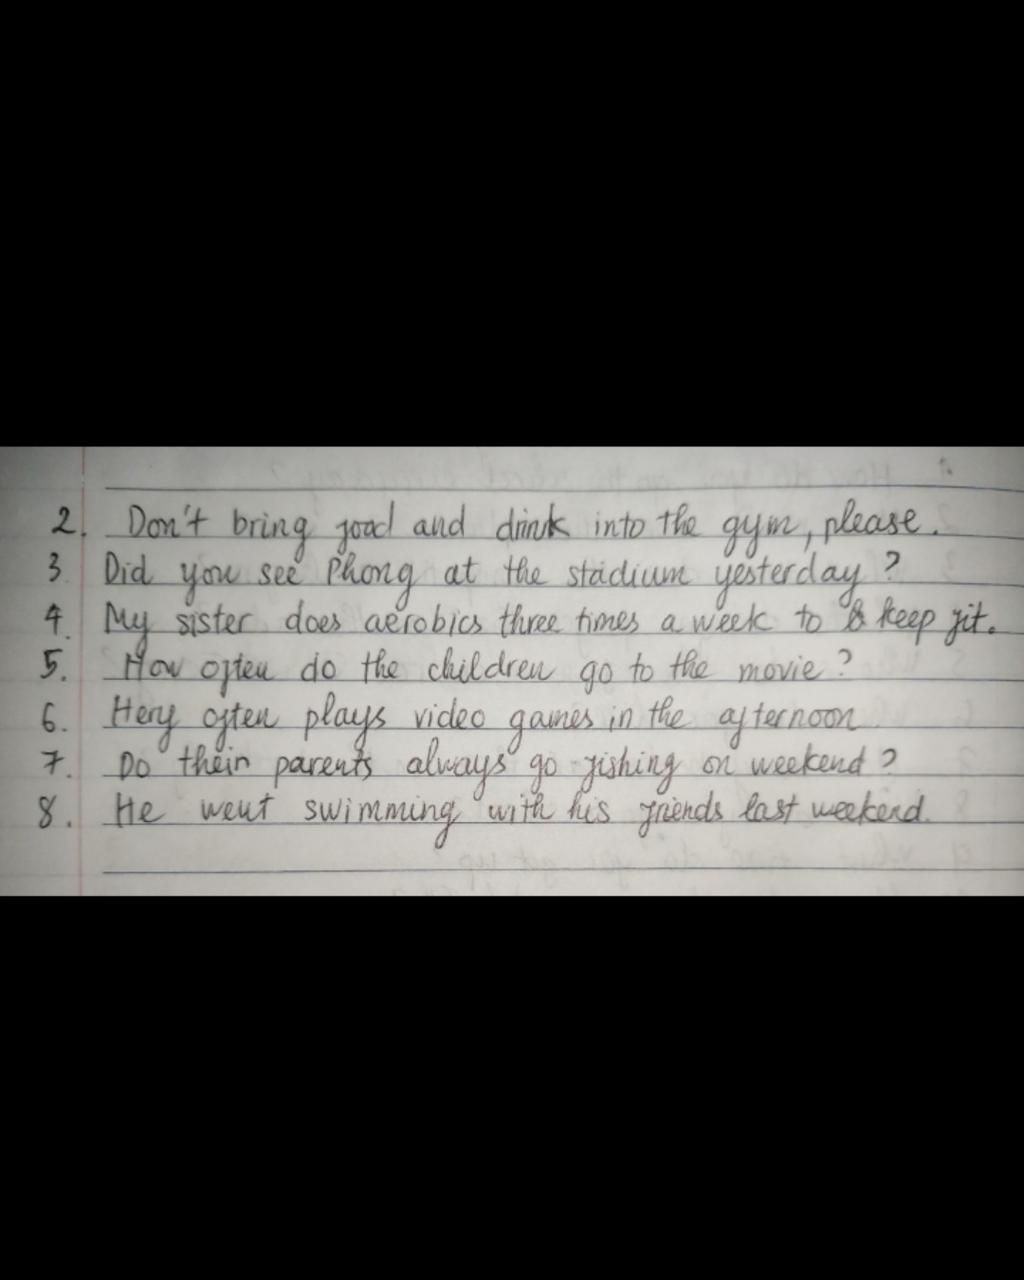 2. Don't bring food and drink into the gym, please.
3. Did you see Phong at the stadium yesterday?
4. My sister does aerobics three times a week to keep fit.
5. How often do the children go to the movie?
6. Hery often plays video games in the afternoon
7. Do their parents always go fishing on weekend?
8. He went swimming with his friends last weekend.